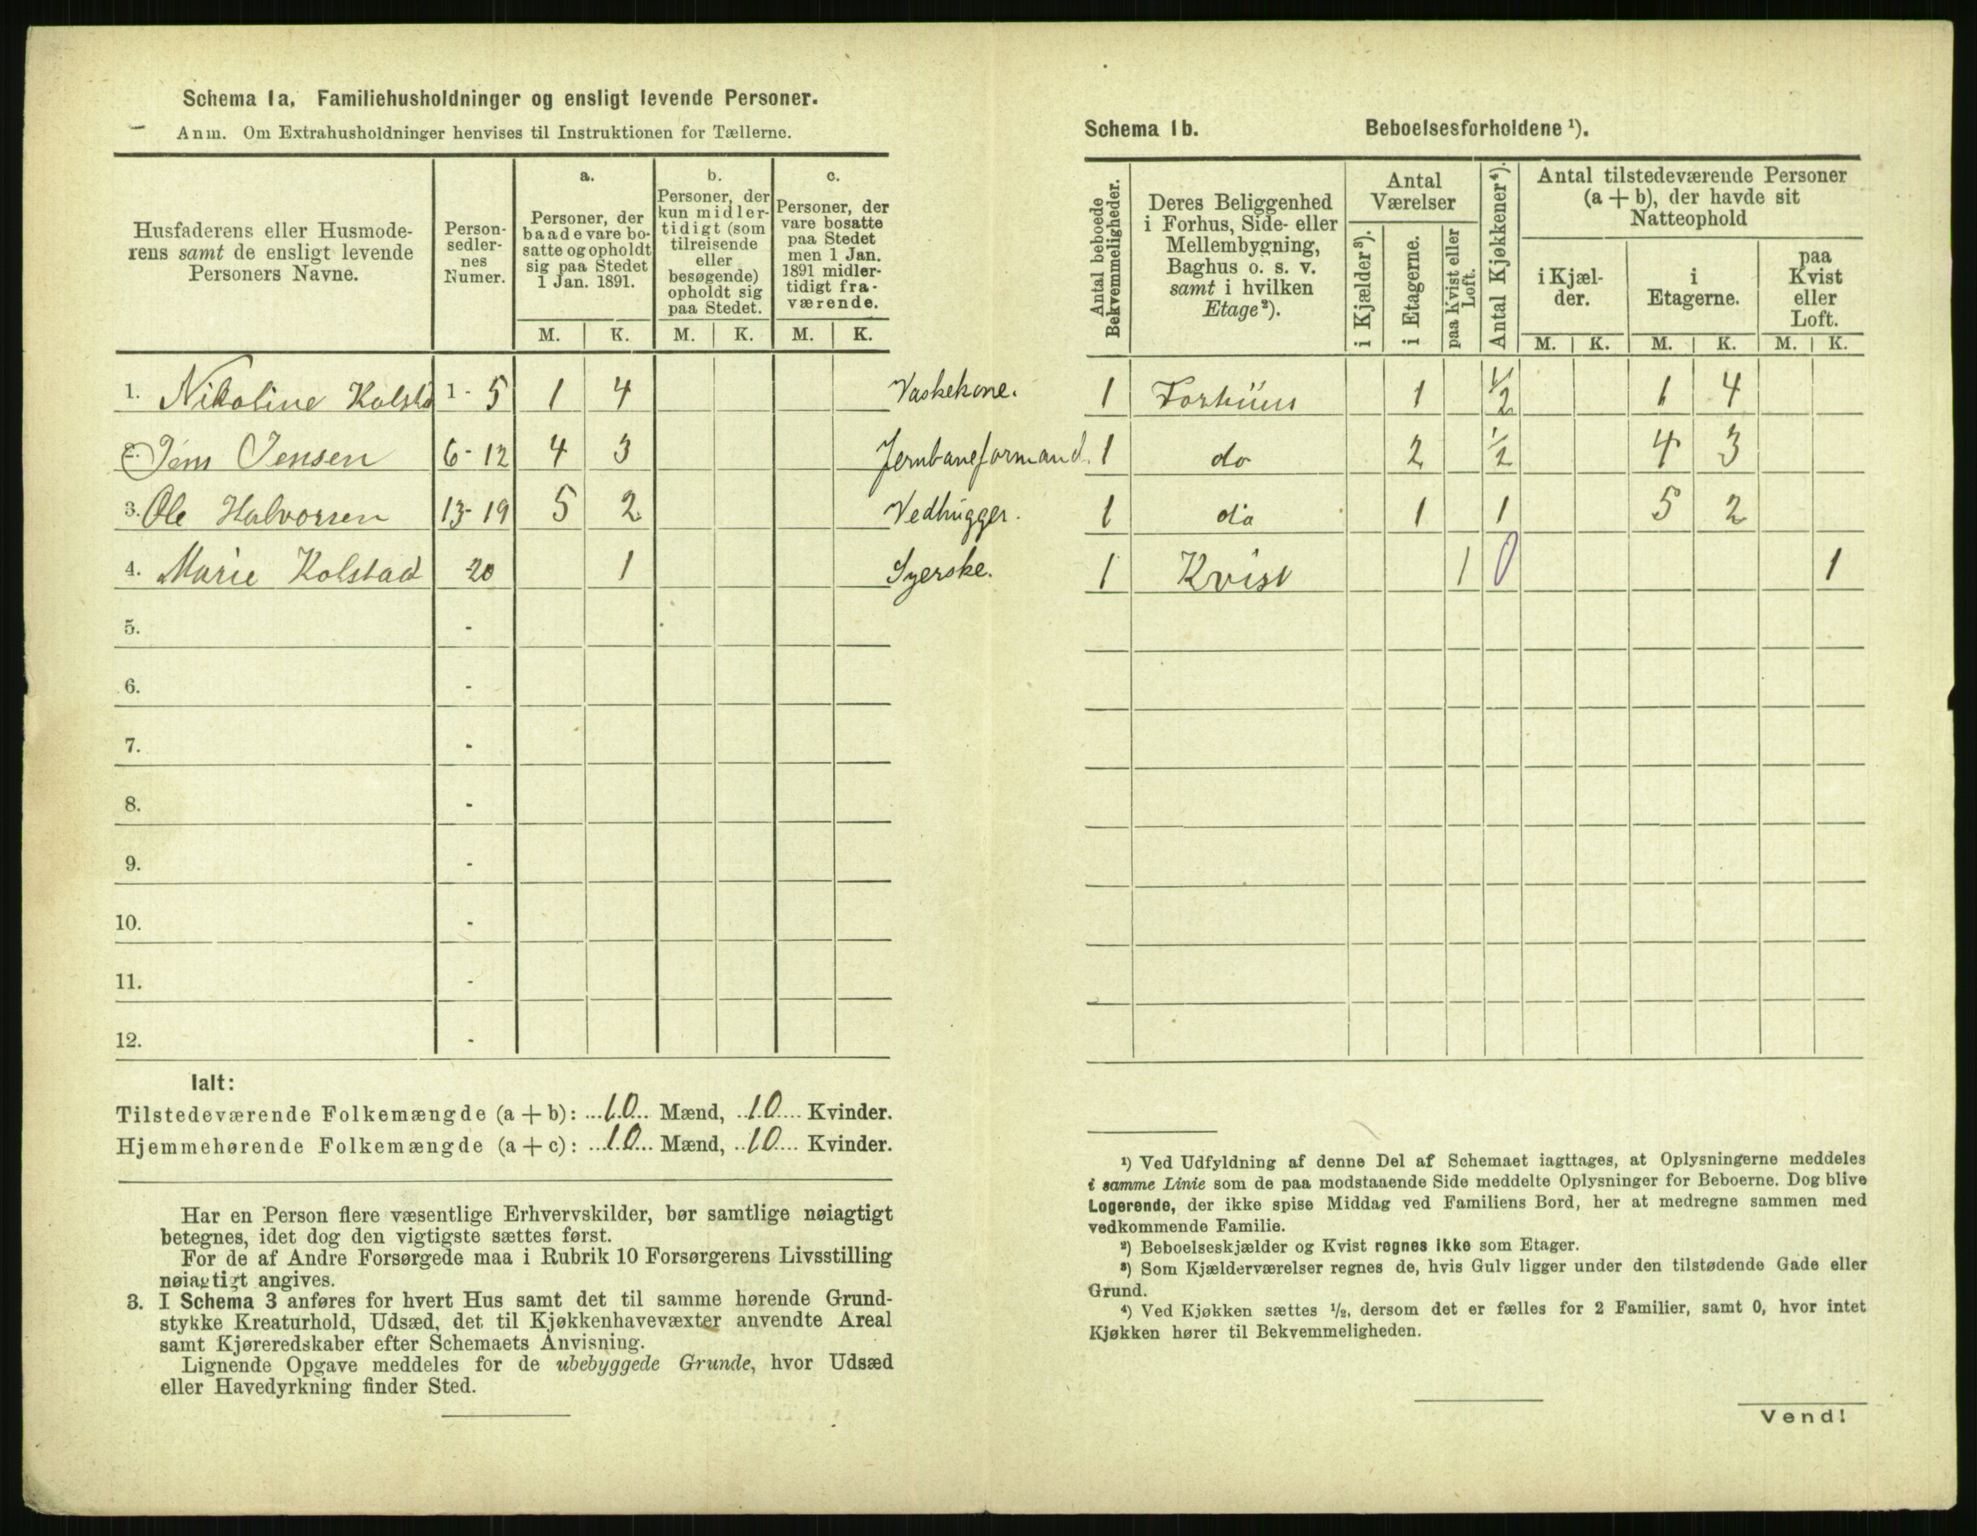 Schema 1a. Familiehusholdninger og ensligt levende Personer.
Anm. Om Extrahusholdninger henvises til Instruktionen for Tællerne.
Husfaderens eller Husmode-
rens samt de ensligt levende
Personers Navne.
Person-
sedler-
nes
Numer.
a.
Personer, der
baade vare bo-
satte og opholdt
sig paa Stedet
1 Jan. 1891.
b.
Personer, der
kun midler-
tidigt (som
tilreisende
eller
besøgende)
opholdt sig
paa Stedet.
c.
Personer, der
vare bosatte
paa Stedet
men 1 Jan.
1891 midler-
tidigt fra-
værende.
M. K. M. K. M. K.
1. Nikoline Kolstad 1 - 5 1 4 Vaskekone.
2. Jens Jensen 6 - 12 4 3 Jernbaneformand.
3. Ole Halvorsen 13 - 19 5 2 Vedhugger.
4. Marie Kolstad 20 1 Syerske.
5. -
6. -
7. -
8. -
9. -
10. -
11. -
12. -
Ialt:
Tilstedeværende Folkemængde (a + b): ...10... Mænd, ..10.... Kvinder.
Hjemmehørende Folkemængde (a + c): ...10... Mænd, ..10.... Kvinder.
Har en Person flere væsentlige Erhvervskilder, bør samtlige nøiagtigt
betegnes, idet dog den vigtigste sættes først.
For de af Andre Forsørgede maa i Rubrik 10 Forsørgerens Livsstilling
nøiagtigt angives.
3. I Schema 3 anføres for hvert Hus samt det til samme hørende Grund-
stykke Kreaturhold, Udsæd, det til Kjøkkenhavevæxter anvendte Areal
samt Kjøreredskaber efter Schemaets Anvisning.
Lignende Opgave meddeles for de ubebyggede Grunde, hvor Udsæd
eller Havedyrkning finder Sted.
Schema 1b. Beboelsesforholdene ¹).
Antal beboede
Bekvemmeligheder.
Deres Beliggenhed
i Forhus, Side- eller
Mellembygning,
Baghus o. s. v.
samt i hvilken
Etage²).
Antal
Værelser
i Kjælder³).
i Etagerne.
paa Kvist eller
Loft.
Antal Kjøkkener⁴).
Antal tilstedeværende Personer
(a + b), der havde sit
Natteophold
i Kjæl-
der.
i
Etagerne.
paa
Kvist
eller
Loft.
M. K. M. K. M. K.
1 Forhuus 1 1/2 1 4
1 do 2 1/2 4 3
1 do 1 1 5 2
1 Kvist 1 0 1
¹) Ved Udfyldning af denne Del af Schemaet iagttages, at Oplysningerne meddeles
i samme Linie som de paa modstaaende Side meddelte Oplysninger for Beboerne. Dog blive
Logerende, der ikke spise Middag ved Familiens Bord, her at medregne sammen med
vedkommende Familie.
²) Beboelseskjælder og Kvist regnes ikke som Etager.
³) Som Kjælderværelser regnes de, hvis Gulv ligger under den tilstødende Gade eller
Grund.
⁴) Ved Kjøkken sættes ½, dersom det er fælles for 2 Familier, samt 0, hvor intet
Kjøkken hører til Bekvemmeligheden.
Vend!